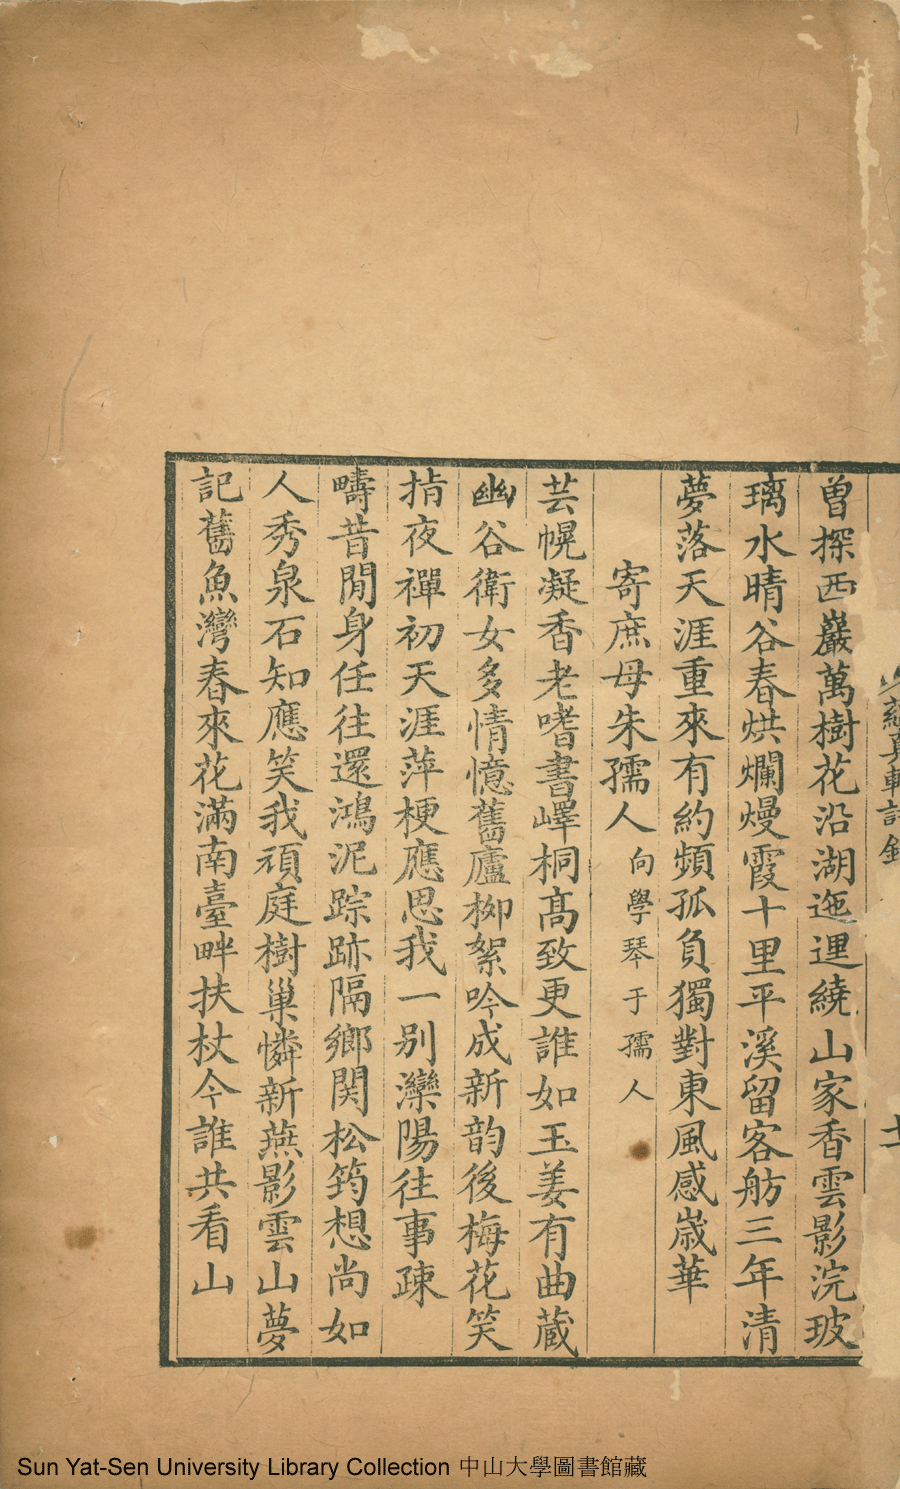 曾探西巖萬樹花沿湖迤逦繞山家香雲影浣玻
璃水晴谷春烘爛熳霞十里平溪留客舫三年清
夢落天涯重來有約頻孤負獨對東風感歲華
寄庶母朱孺人向學琴于孺人
芸幌凝香老嗜書嶧桐高致更誰如玉姜有曲藏
幽谷衛女多情憶舊廬柳絮吟成新韵後梅花笑
㨖夜禪初天涯萍梗應思我一别灤陽往事疎
疇昔閒身任往還鴻泥踪跡隔鄉関松筠想尚如
人秀泉石知應笑我頑庭樹巢憐新燕影雲山夢
記舊魚灣春來花滿南臺畔扶杖今誰共看山
蘊真軒詩鈔
Sun Yat-Sen University Library Collection 中山大學圖書館藏